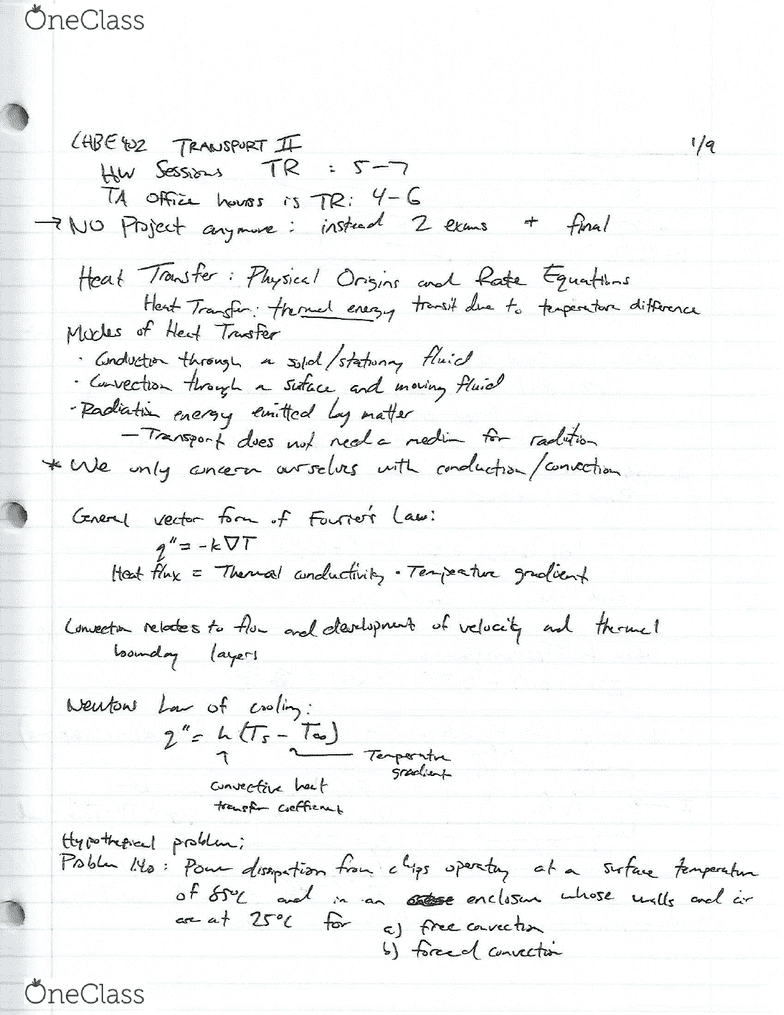 OneClass
CHBE 402 TRANSPORT II 1/9
HW Sessions TR : 5-7
TA Office hours is TR: 4-6
→ NO Project anymore : instead 2 exams + final
Heat Transfer : Physical Origins and Rate Equations
Heat Transfer: thermal energy transit due to temperature difference
Modes of Heat Transfer
· Conduction through a solid/stationary fluid
· Convection through a surface and moving fluid
· Radiation energy emitted by matter
— Transport does not need a medium for radiation
* We only concern ourselves with conduction/convection
General vector form of Fourier's Law:
q" = -k∇T
Heat flux = Thermal conductivity · Temperature gradient
Convection relates to flow and development of velocity and thermal
boundary layers
Newtons Law of cooling:
q" = h (Ts - T∞)
↑ Temperature
gradient
convective heat
transfer coefficient
Hypothetical problem:
Problem 1.40 : Power dissipation from chips operating at a surface temperature
of 85°C and in an enclosure whose walls and air
are at 25°C for a) free convection
b) forced convection
OneClass